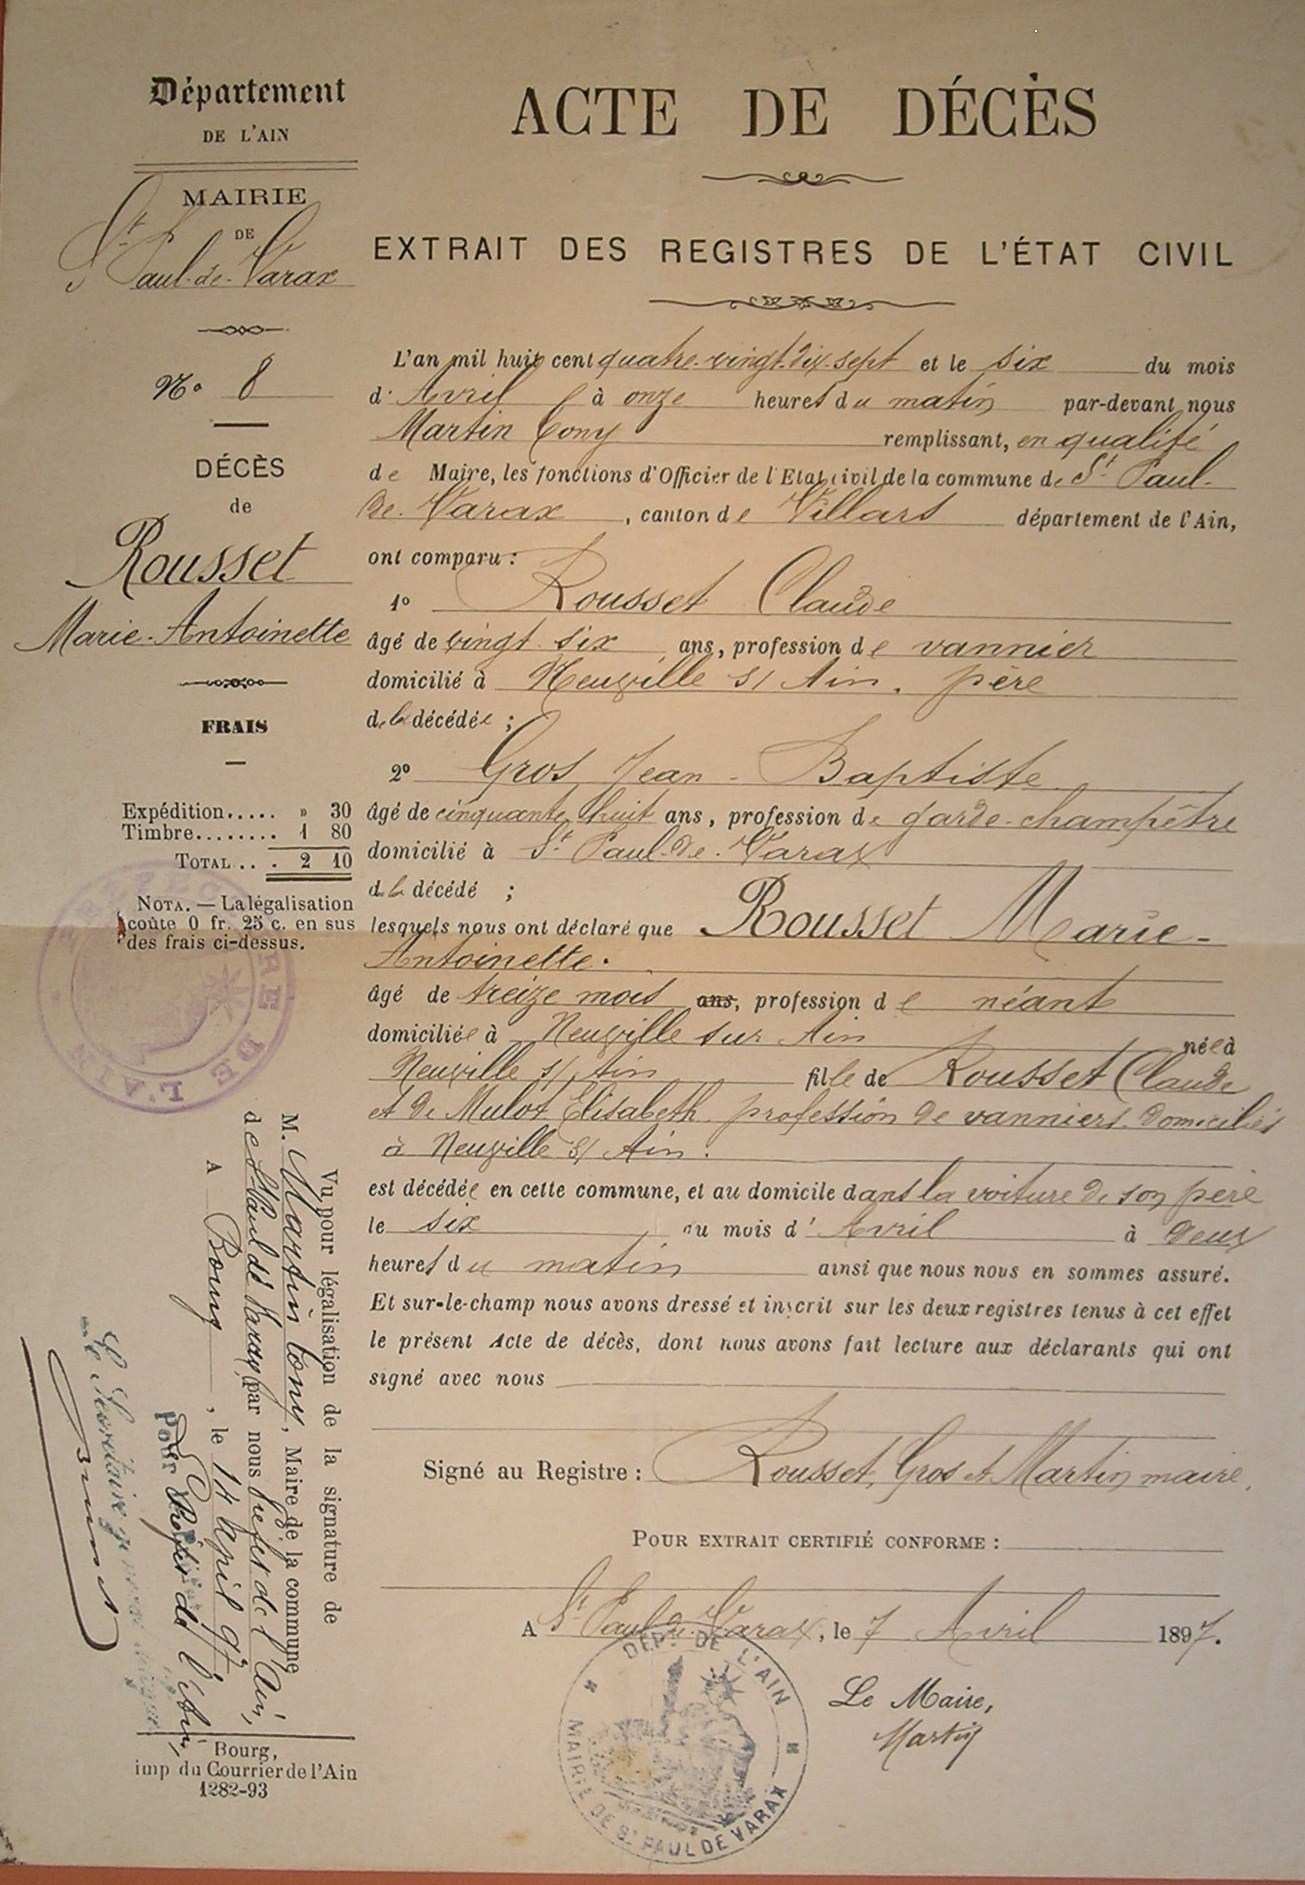 Département
DE L'AIN
MAIRIE
DE
St Paul-de-Varax
No 8
DÉCÈS
de
Rousset
Marie-Antoinette
FRAIS
Expédition..... » 30
Timbre........ 1 80
TOTAL... 2 10
NOTA. — La légalisation
coûte 0 fr. 25 c. en sus
des frais ci-dessus.
ACTE DE DÉCÈS
EXTRAIT DES REGISTRES DE L'ÉTAT CIVIL
L'an mil huit cent quatre-vingt-dix-sept et le six du mois
d'Avril à onze heures du matin par-devant nous
Martin Tony remplissant, en qualité
de Maire, les fonctions d'Officier de l'Etat civil de la commune de St Paul-
de-Varax, canton de Villars département de l'Ain,
ont comparu :
1o Rousset Claude
âgé de vingt-six ans, profession de vannier
domicilié à Neuville s/ Ain, père
de la décédée ;
2o Gros Jean-Baptiste
âgé de cinquante huit ans, profession de garde-champêtre
domicilié à St Paul-de-Varax
de la décédé ;
lesquels nous ont déclaré que Rousset Marie-
Antoinette.
âgé de treize mois ans, profession de néant
domiciliée à Neuville sur Ain née à
Neuville s/ Ain fille de Rousset Claude
et de Mulot Elisabeth profession de vanniers domiciliés
à Neuville s/ Ain.
est décédée en cette commune, et au domicile dans la voiture de son père
le six du mois d'Avril à deux
heures du matin ainsi que nous nous en sommes assuré.
Et sur-le-champ nous avons dressé et inscrit sur les deux registres tenus à cet effet
le présent Acte de décès, dont nous avons fait lecture aux déclarants qui ont
signé avec nous
Signé au Registre : Rousset, Gros et Martin maire.
POUR EXTRAIT CERTIFIÉ CONFORME :
A St Paul-de-Varax, le 7 Avril 1897.
Le Maire,
Martin
DEPt. DE L'AIN
MAIRIE DE St PAUL DE VARAX
Vu pour légalisation de la signature de
M. Martin Tony, Maire de la commune
de St Paul de Varax, par nous Préfet de l'Ain,
A Bourg, le 14 April 97
Pour Le Préfet de l'Ain,
Le Secrétaire
DE L'AIN
Bourg,
imp du Courrier de l'Ain
1282-93